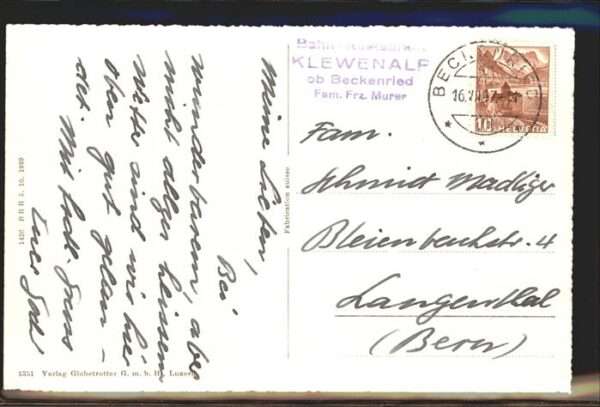 Meine Lieben,
Bei
wunderbarem, aber
nicht allzu heissem
Wetter sind wir hier
oben gut gelan-
det. Mit herzl. Gruss
Euer
1420 RRR I. 10. 1909
Fabrication suisse
1351 Verlag Globetrotter G. m. b. H., Luzern
Bahn-Restaurant
KLEWENALP
ob Beckenried
Fam. Frz. Murer
BECKENRIED
16.VII.
10 HELVETIA
Fam.
Schmidt Madliger
Bleienbachstr. 4
Langenthal
(Bern)